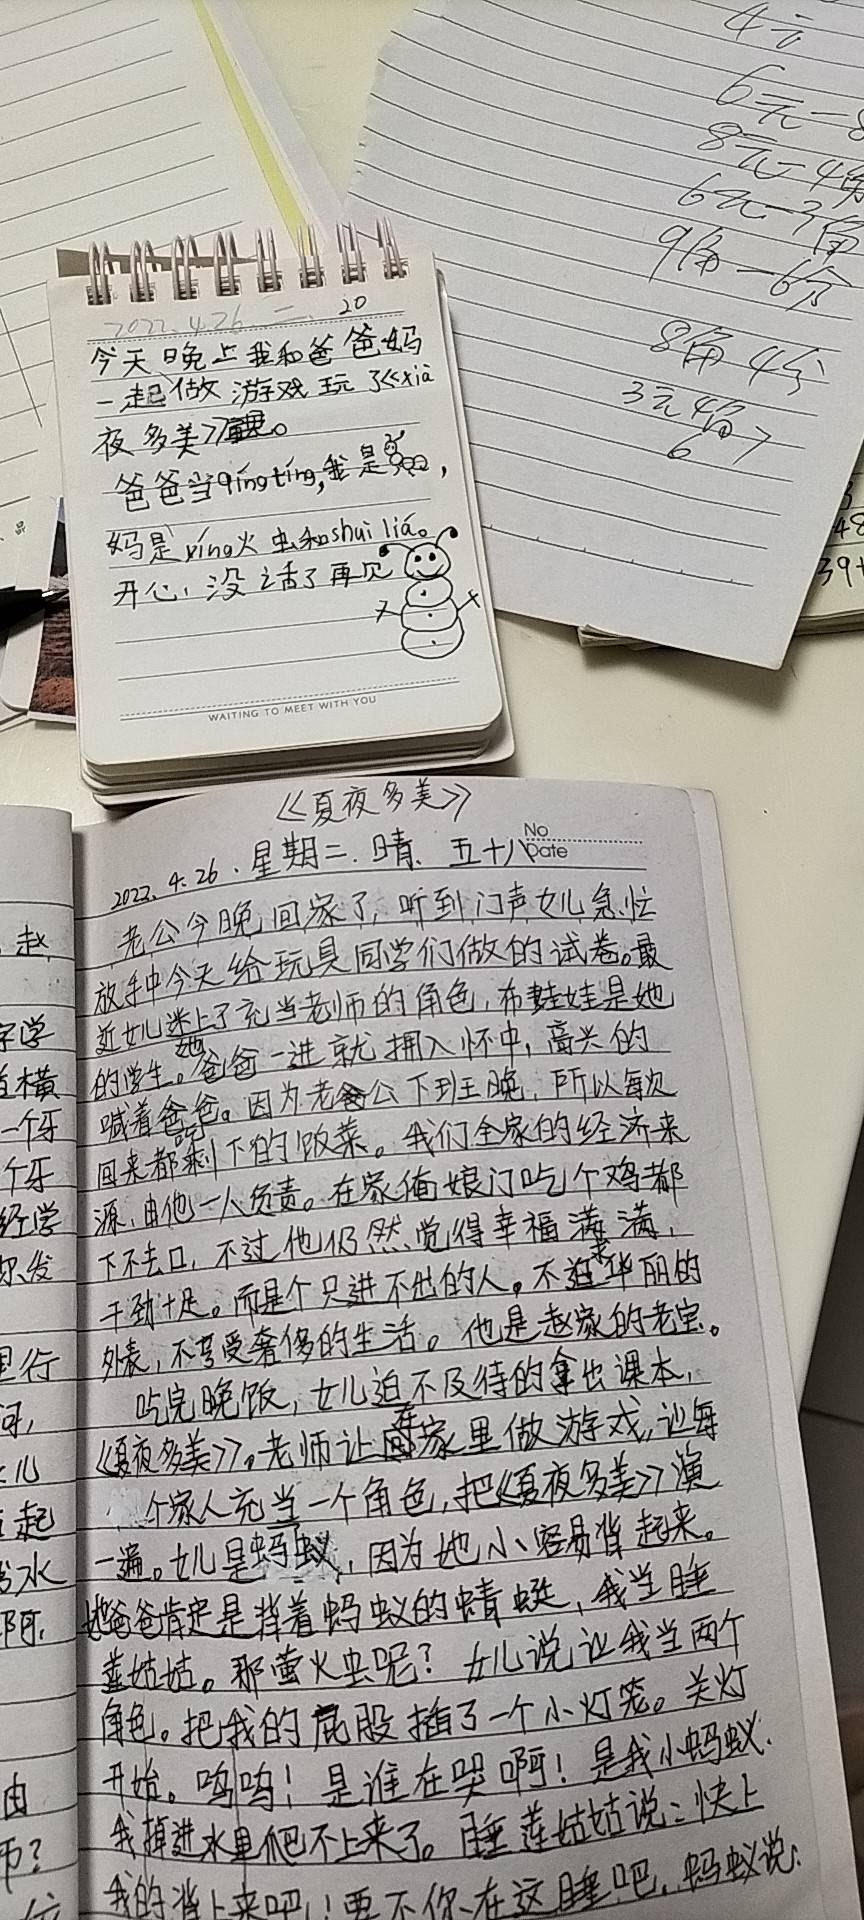 4元
6元-8
8元-4角
6元-3角
9角-6分
8角4分
3元4角>
6
48
39+
2022.4.26 二. 20
今天晚上我和爸爸妈
一起做游戏玩了《xià
夜多美》。
爸爸当qíng tíng,我是,
妈是yíng火虫和shuì lián。
开心,没话了再见
WAITING TO MEET WITH YOU
《夏夜多美》
No
Date
2022.4.26.星期二.晴.五十八
老公今晚回家了,听到门声女儿急忙
放手中今天给玩具同学们做的试卷。最
近女儿迷上了充当老师的角色,布娃娃是她
的学生。她爸爸一进就拥入怀中,高兴的
喊着爸爸。因为老公下班晚,所以每次
回来都吃剩下的饭菜。我们全家的经济来
源,由他一人负责。在家俺娘门吃个鸡都
下不去口,不过他仍然觉得幸福满满,
干劲十足。而是个只进不出的人。不追求华丽的
外表,不享受奢侈的生活。他是赵家的老宝。
吃完晚饭,女儿迫不及待的拿出课本,
《夏夜多美》。老师让在家里做游戏,让每
个家人充当一个角色,把《夏夜多美》演
一遍。女儿是蚂蚁,因为她小容易背起来。
她爸爸肯定是背着蚂蚁的蜻蜓,我当睡
莲姑姑。那萤火虫呢?女儿说让我当两个
角色。把我的屁股插了一个小灯笼。关灯
开始。呜呜!是谁在哭啊!是我小蚂蚁.
我掉进水里爬不上来了。睡莲姑姑说:快上
我的背上来吧!要不你在这睡吧.蚂蚁说:
赵
字学
横
一个牙
个牙
经学
发
里行
河,
儿
起
水
阿.
由
币?